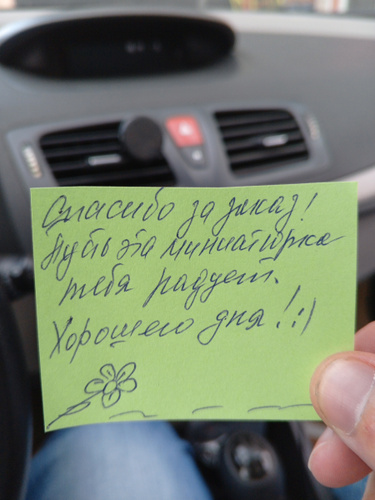 Спасибо за заказ!
Пусть эта миниатюрка
тебя радует.
Хорошего дня! :)